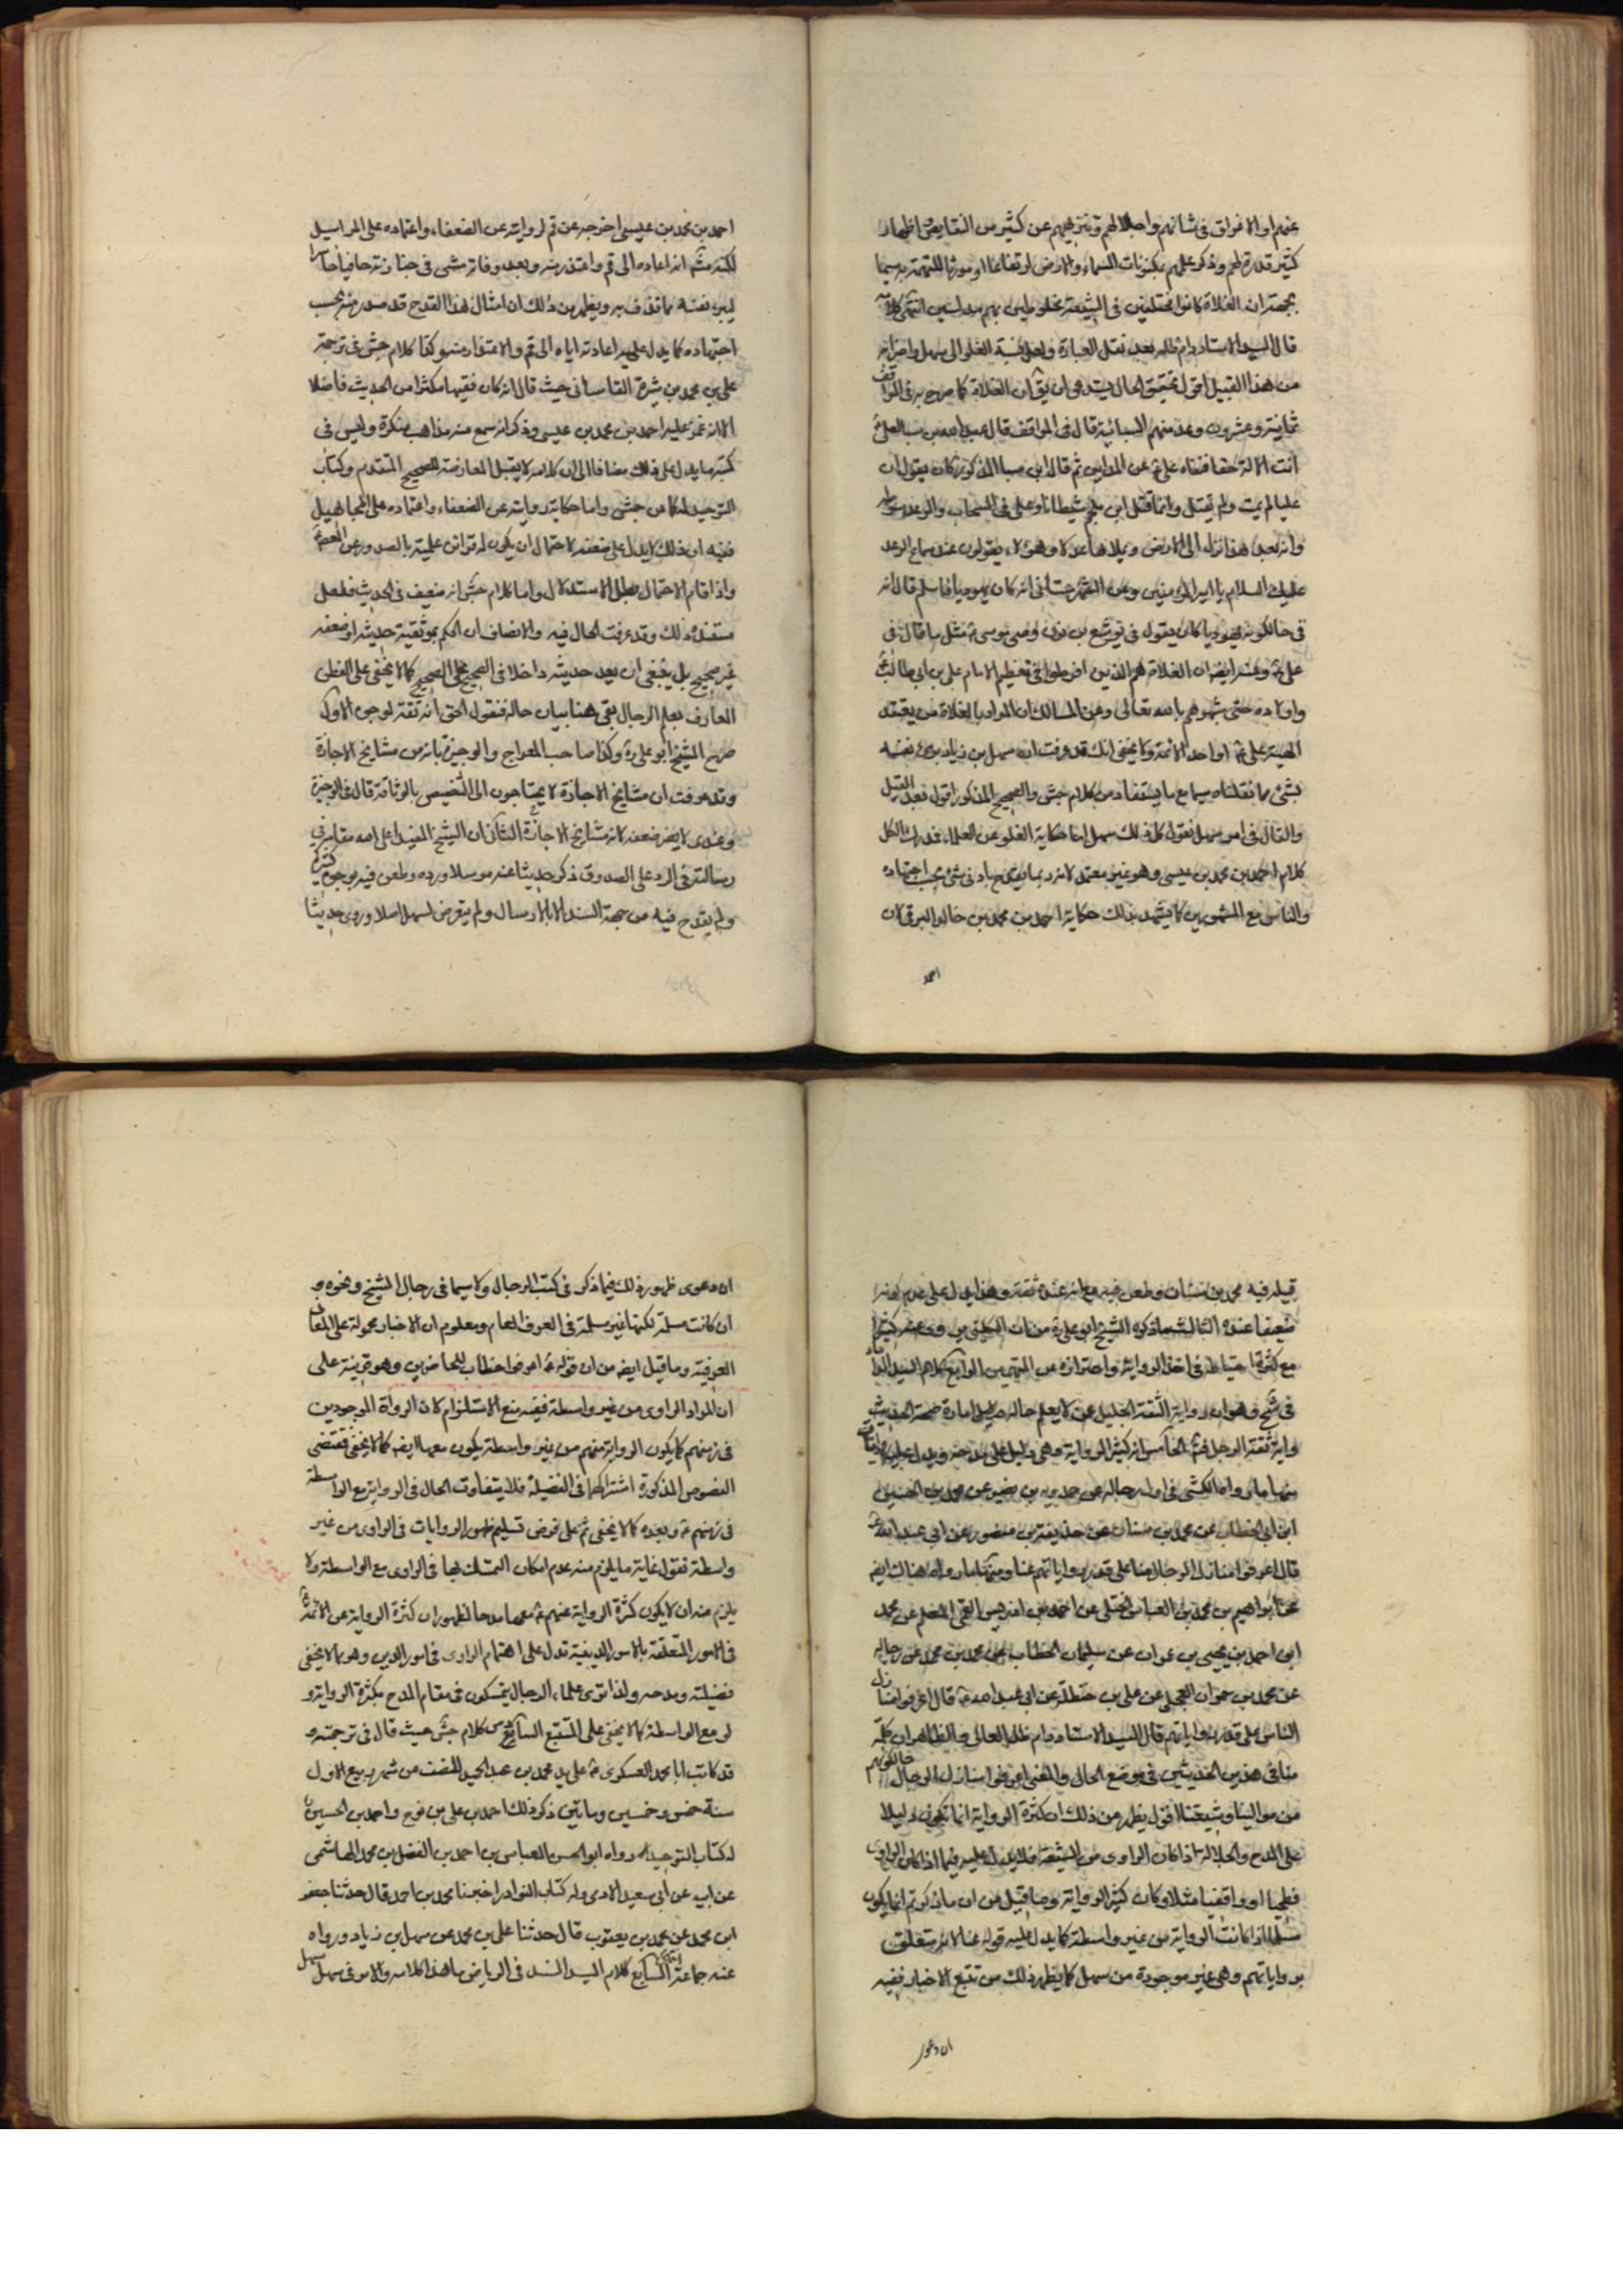 عنهم او الاغراق فى شانهم واجلالهم وتنزيههم عن كثير من النقايص اظهار
كثير قدرة لهم وذكر علمهم بمكنونات السماء والارض ارتفاعا او مورثا للتهمة به سيما
بجهة ان الغلاة كانوا مختلفين فى الشيعة مخلوطين بهم مدلسين انتهى كلامه
قال السيد الاستاد دام ظله بعد نقل العبارة ولعل نسبة الغلو الى سهل واضرابه
من هذا القبيل اقول تحقيق الحال يستدعى ان يق ان الغلاة كما صرح به فى المواقف
ثمانية وعشرون وعد منهم السبائية قال فى المواقف قال عبد الله بن سبا لعلى ع
انت الاله حقا فنفاه على ع عن المداين ثم قال ابن سبا المذكور كان يقول ان
عليا لم يمت ولم يقتل وانما قتل ابن ملجم شيطانا وعلى فى السحاب والرعد سوطه
وانه بعد هذا نزل الى الارض ويملاها عدلا وهؤلاء يقولون عند سماع الرعد
عليك السلام يا امير المؤمنين وعن انه كان يهوديا فاسلم قال انه
فى حال كونه يهوديا كان يقول فى يوشع بن نون وصى موسى ع مثل ما قال فى
على ع وعنه ايضه ان الغلاة هم الذين افرطوا فى تعظيم الامام على بن ابى طالب ع
واولاده حتى شبهوهم بالله تعالى وعن المسالك ان المراد بالغلاة من يعتقد
الهية على ع او احد الائمة ولا يخفى انك قد عرفت ان سهل بن زياد برئ نفسه
بشئ مما نقلناه سيما مع ما يستفاد من كلام جش والصحيح المذكور اقول فبعد القيل
والقال فى امر سهل نقول كل ذلك سهل اما حكاية الغلو عن العلماء فمدرك الكل
كلام احمد بن محمد بن عيسى وهو غير معتمد لانه ربما يقدح بادنى شئ بحسب اجتهاده
والناس مع المشهورين كما يشهد بذلك حكاية احمد بن محمد بن خالد البرقى لان
احمد
احمد بن محمد بن عيسى اخرجه عن قم لروايته عن الضعفاء واعتماده على المراسيل
لكنه ثم انه اعاده الى قم واعتذر منه وبعد وفاته مشى فى جنازته حافيا حاسرا
ليبرء نفسه مما قذف به ويظهر من ذلك ان امثال هذا القدح قد صدر منه بحسب
اجتهاده كما يدل عليه اعادته اياه الى قم والاعتذار منه وكذا كلام جش فى ترجمة
على بن محمد بن شيرة القاسانى حيث قال انه كان فقيها مكثرا من الحديث فاضلا
الا انه غمز عليه احمد بن محمد بن عيسى وذكر انه سمع منه مذاهب منكرة وليس فى
كتبه ما يدل على ذلك مضافا الى ان كلامه لا يقبل المعارضة للصحيح المتقدم وكتاب
التوحيد له كما من جش واما حكاية روايته عن الضعفاء واعتماده على المجاهيل
ففيه ان ذلك لا يدل على ضعفه لاحتمال ان يكون له قراين علمية بالصدور عن المعصوم ع
واذا قام الاحتمال بطل الاستدلال واما كلام جش انه ضعيف فى الحديث فلعل
مستنده ذلك وقد عرفت الحال فيه والانصاف ان الحكم بموثقية حديثه او ضعفه
غير صحيح بل ينبغى ان يعد حديثه داخلا فى الصحيح على الصحيح كما لا يخفى على الفطن
العارف بعلم الرجال بقى هنا بيان حاله فنقول الحق انه ثقة لوجوه الاول
صرح الشيخ ابو على ره وكذا صاحب المعراج والوجيزة بانه من مشايخ الاجازة
وقد عرفت ان مشايخ الاجازة لا يحتاجون الى التنصيص بالوثاقة قال فى الوجيزة
وعندى لا يضر ضعفه لانه مشايخ الاجازة الثانى ان الشيخ المفيد اعلى الله مقامه فى
رسالته فى الرد على الصدوق ذكر حديثا عنه مرسلا ورده وطعن فيه بوجوه كثيرة
ولم يقدح فيه من جهة السند الا بالارسال ولم يتعرض لسهل اصلا وروى حديثا
قبله فيه محمد بن سنان وطعن فيه مع انه عنده ثقة وهذا يدل على عدم كونه
ضعيفا عنده الثالث ما ذكره الشيخ ابو على ره من ان الكلينى روى عنه كثيرا
مع كثرة احتياطه فى اخذ الرواية واحترازه عن المتهمين الرابع كلام السيد الداماد
فى شح وهو ان رواية الثقة الجليل عمن لا يعلم حاله دليل امارة صحة الحديث
واية ثقة الرجل فتم الخامس انه كثير الرواية وهى دليل على مدحه ويدل عليه روايات
منها ما رواه الكشى فى اول رجاله عن حمدويه بن نصير عن محمد بن الحسين
ابن ابى الخطاب عن محمد بن سنان عن حذيفة بن منصور عن ابى عبد الله ع
قال اعرفوا منازل الرجال منا على قدر رواياتهم عنا ومنها ما رواه هناك ايضه
عن ابراهيم بن محمد بن العباس الختلى عن احمد بن ادريس القمى المعلم عن محمد
ابن احمد بن يحيى بن عمران عن سليمان الخطاب عن محمد بن محمد عن رجاله
عن محمد بن حمران العجلى عن على بن حنظلة عن ابى عبد الله ع قال اعرفوا منازل
الناس على قدر رواياتهم قال السيد الاستاد دام ظله العالى والظاهر ان كلمة
منا فى هذين الحديثين فى موضع الحال والمعنى اعرفوا منازل الرجال حال كونهم
من موالينا وشيعتنا اقول يظهر من ذلك ان كثرة الرواية انما تكون دليلا
على المدح والجلالة اذا كان الراوى من الشيعة فلا يدل عليه فيما اذا كان الراوى
فطحيا او واقفيا مثلا وكان كثير الرواية وما قيل من ان ما ذكرتم انما يكون
مسلما اذا كانت الرواية من غير واسطة كما يدل عليه قوله عنا لانه متعلق
برواياتهم وهى غير موجودة من سهل كما يظهر ذلك من تتبع الاخبار ففيه
ان دعوى
ان دعوى ظهور ذلك فيما ذكر فى كتب الرجال ولا سيما فى رجال الشيخ ونحوه و
ان كانت مسلمة لكنها غير مسلمة فى العرف العام ومعلوم ان الاخبار محمولة على المعانى
العرفية وما قيل ايضه من ان قوله ع اعرفوا خطاب للحاضرين وهو قرينة على
ان المراد الراوى من غير واسطة ففيه منع الاستلزام لان الرواة الموجودين
فى زمنهم كما يكون الرواية منهم من غير واسطة يكون معها ايضه كما لا يخفى فمقتضى
النصوص المذكورة اشتراكهما فى الفضيلة فلا يتفاوت الحال فى الرواية مع الواسطة
فى زمنهم ع وبعده كما لا يخفى ثم على فرض تسليم ظهور الروايات فى الراوى من غير
واسطة فنقول غاية ما يلزم منه عدم امكان التمسك بها فى الراوى مع الواسطة ولا
يلزم منه ان لا يكون كثرة الرواية عنهم ع معها مدحا لظهور ان كثرة الرواية عن الائمة ع
فى الامور المتعلقة بالامور الدينية تدل على اهتمام الراوى فى امور الدين وهو مما لا يخفى
فضيلته ومدحه ولذا ترى علماء الرجال يتمسكون فى مقام المدح بكثرة الرواية و
لو مع الواسطة كما لا يخفى على المتتبع السادس كلام جش حيث قال فى ترجمته و
قد كاتب ابا محمد العسكرى ع على يد محمد بن عبد الحميد للنصف من شهر ربيع الاول
سنة خمس وخمسين ومأتين ذكر ذلك احمد بن على بن نوح واحمد بن الحسين ره
له كتاب التوحيد رواه ابو الحسن العباس بن احمد بن الفضل بن محمد الهاشمى
عن ابيه عن ابى سعيد الادمى وله كتاب النوادر اخبرنا محمد بن احمد قال حدثنا جعفر
ابن محمد عن محمد بن يعقوب قال حدثنا على بن محمد عن سهل بن زياد ورواه
عنه جماعة انتهى السابع كلام السيد السند فى الرياض ما هذا كلامه والامر فى سهل سهل